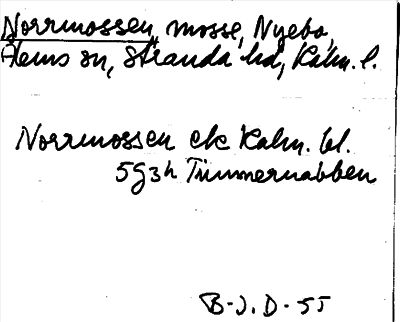 Norrmossen, mosse, Nyebo,
Ålems sn, Stranda hd, Kalm. l.
Norrmossen ek Kalm. bl.
5G3h Timmernabben
B-J.D-55